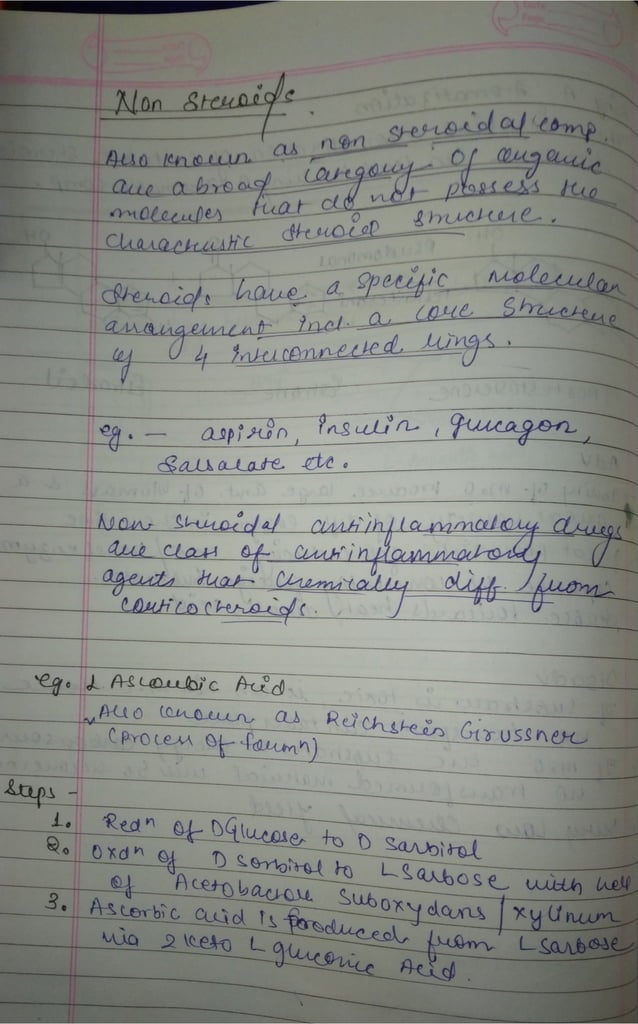 Non Steroids
Also known as non steroidal comp.
are a broad category of organic
molecules that do not possess the
characteristic steroid structure.
Steroids have a specific molecular
arrangement incl. a core structure
of 4 interconnected rings.
eg. - aspirin, insulin, glucagon,
Salsalate etc.
Non steroidal antiinflammatory drugs
are class of antiinflammatory
agents that chemically diff. from
corticosteroids.
eg. L Ascorbic Acid
Also known as Reichstein Girussner
(process of formn)
Steps -
1. Redn of D Glucose to D Sarbitol
2. Oxdn of D Sorbitol to L Sarbose with help
of Acetobacter suboxydans / xylinum
3. Ascorbic acid is produced from L sarbose
via 2 keto L gluconic Acid.